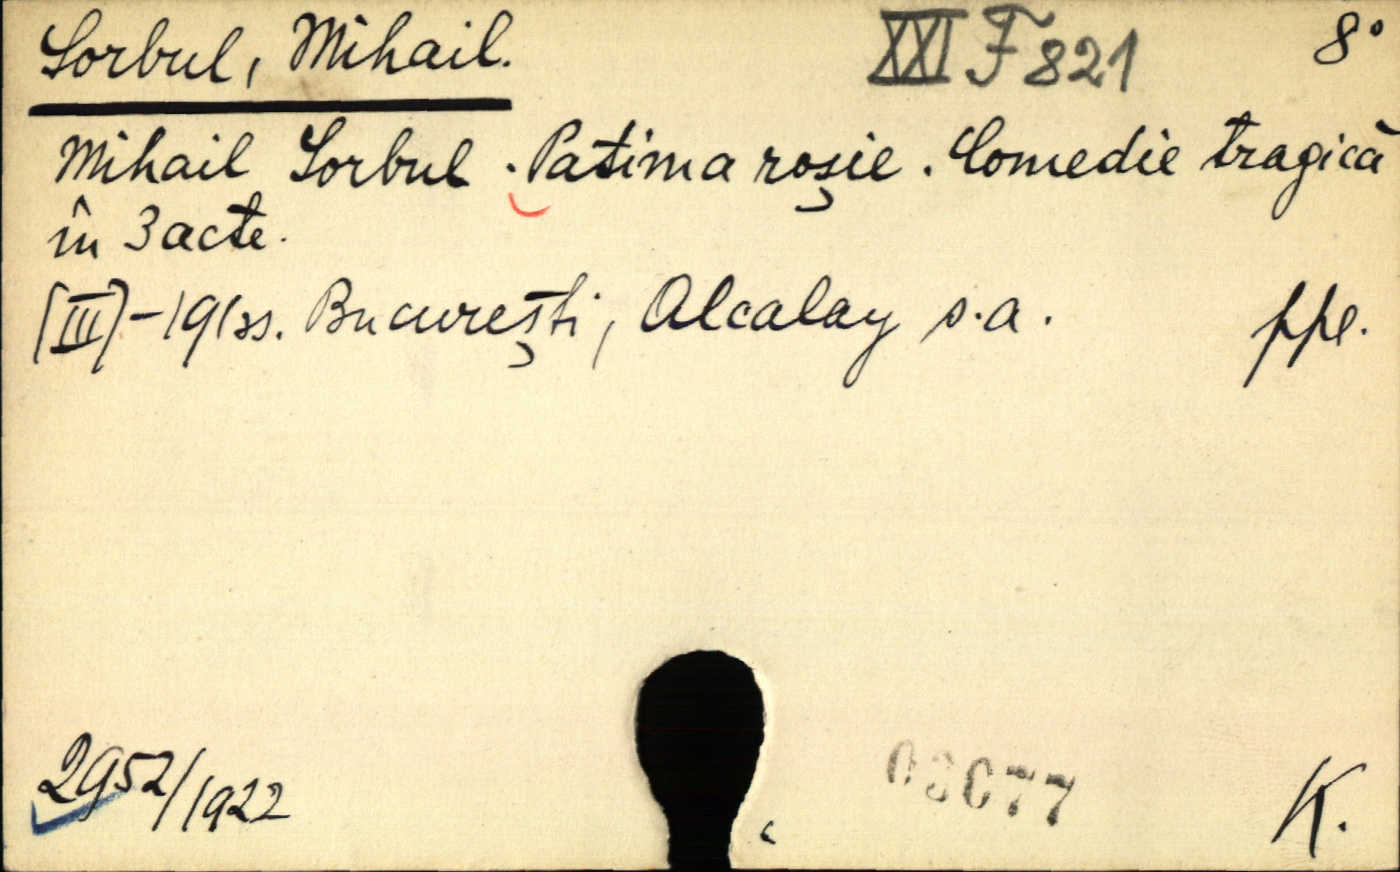 Sorbul, Mihail. XXI F 821 8°
Mihail Sorbul. Patima roșie. Comedie tragică
în 3 acte.
[III]-191 ss. București, Alcalay s.a. ppl.
2952/1922 K.